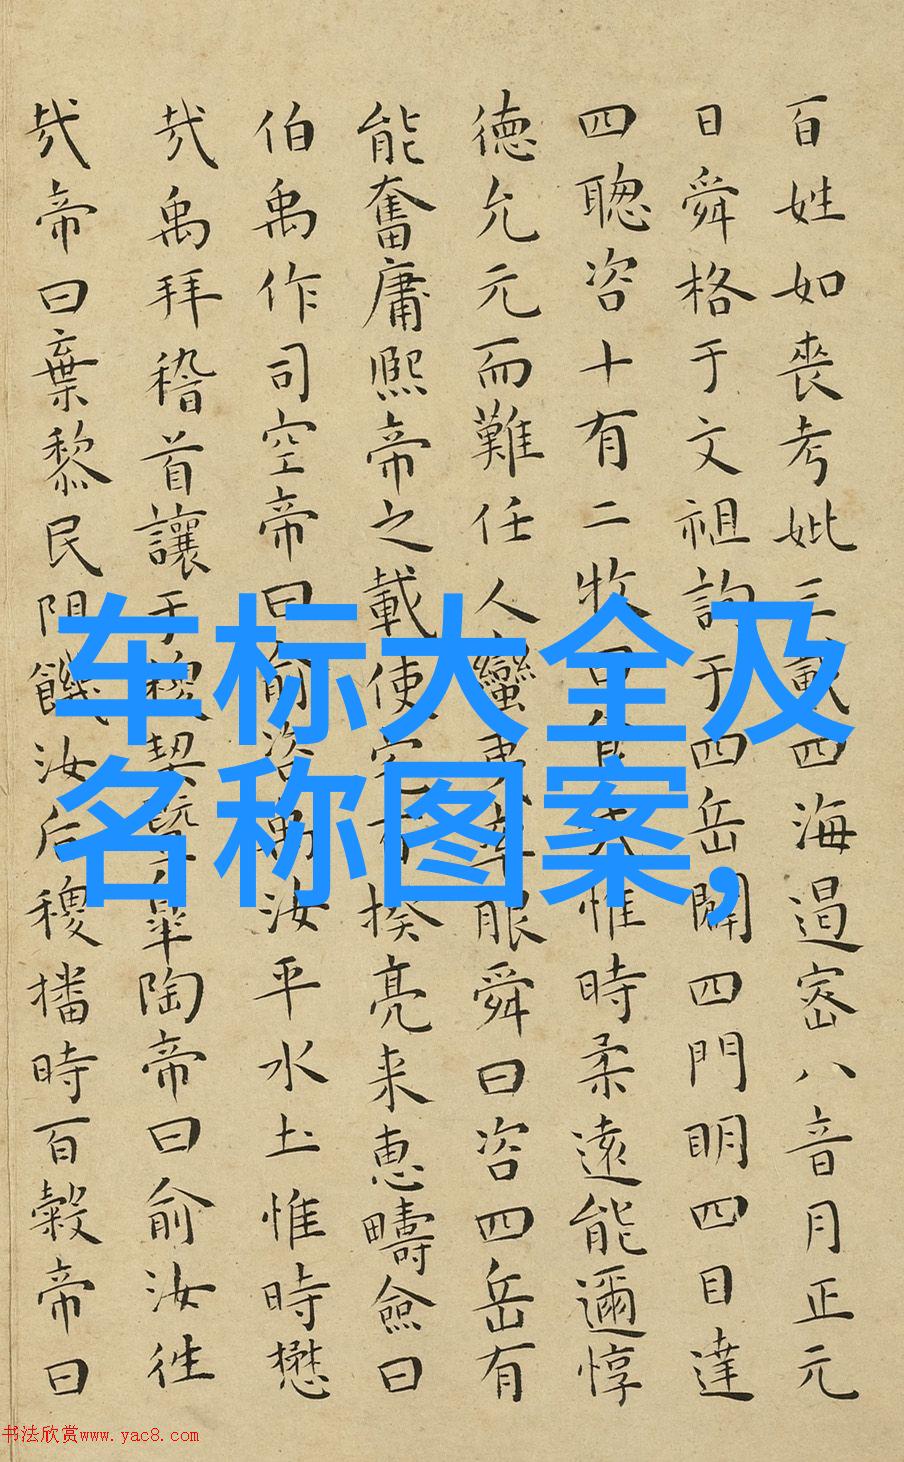 百姓如喪考妣三載四海遏密八音月正元
日舜格于文祖詢于四岳闢四門明四目達
四聦咨十有二牧曰 惟時柔遠能邇惇
德允元而難任人蠻夷率服舜曰咨四岳有
能奮庸熙帝之載使宅百揆亮来惠疇僉曰
伯禹作司空帝曰俞咨禹汝平水土惟時懋
㢤禹拜稽首讓于稷契暨皐陶帝曰俞汝徃
㢤帝曰棄黎民阻饑汝后稷播時百穀帝曰
车标大全及
名称图案,
书法欣赏www.yac8.com